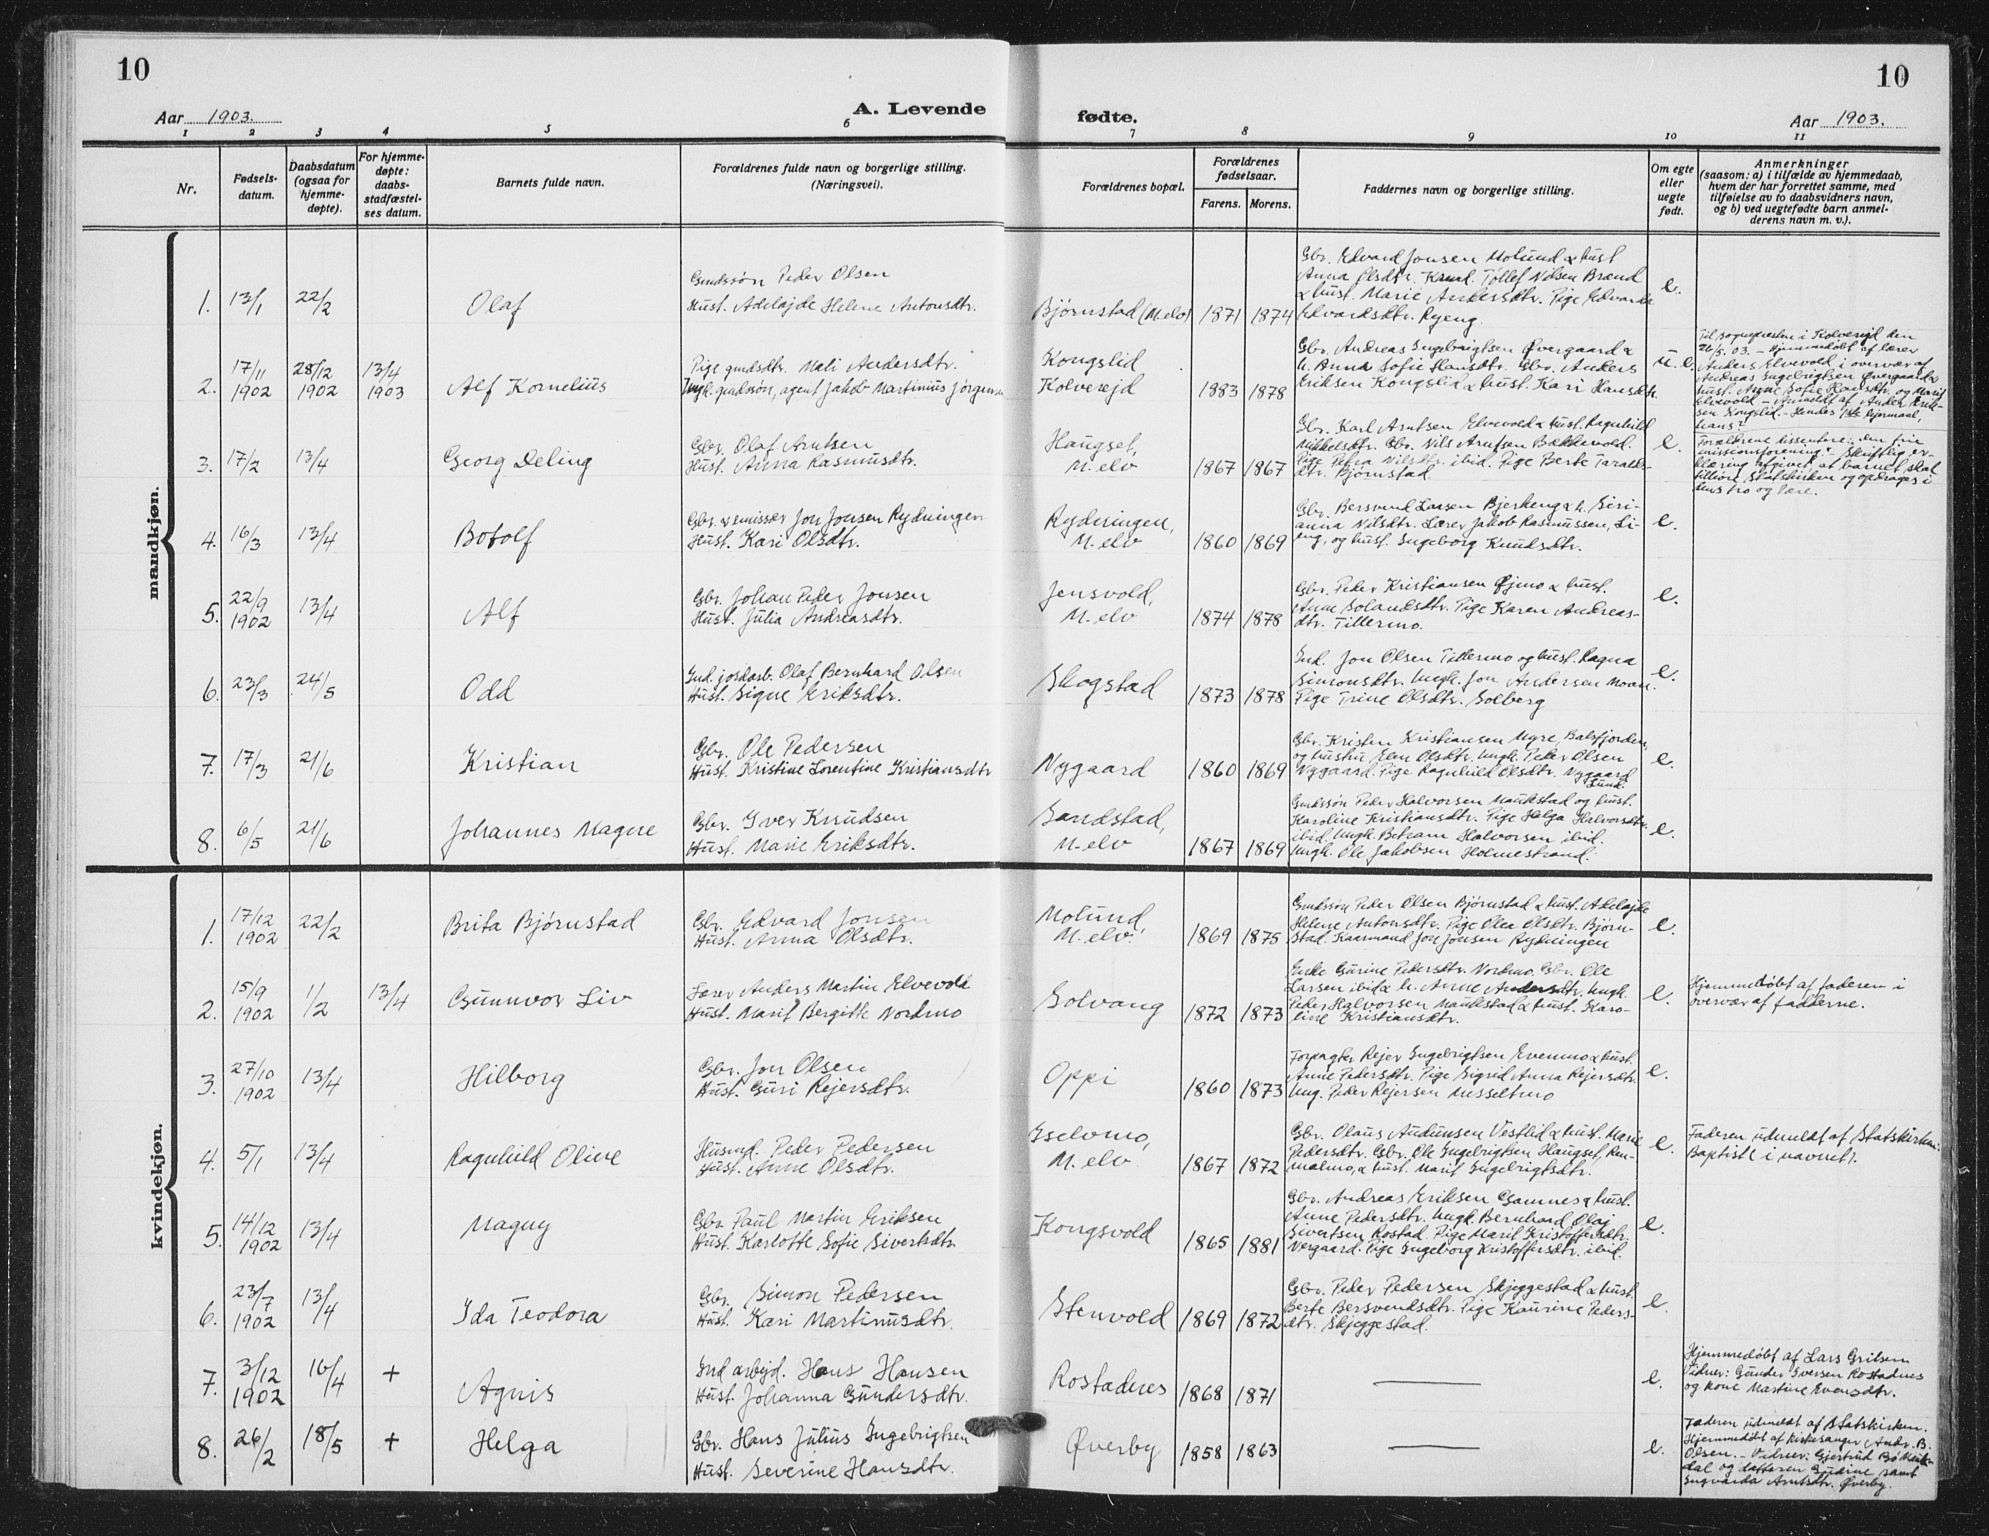 10
10
Aar 1903.
A. Levende
fødte.
Aar 1903.
1 2 3 4 5 6 7 8 9 10 11
Nr.
Fødsels-
datum.
Daabsdatum
(ogsaa for
hjemme-
døpte).
For hjemme-
døpte:
daabs-
stadfæstel-
ses datum.
Barnets fulde navn.
Forældrenes fulde navn og borgerlige stilling.
(Næringsvei).
Forældrenes bopæl.
Forældrenes
fødselsaar.
Farens. Morens.
Faddernes navn og borgerlige stilling.
Om egte
eller
uegte
født.
Anmerkninger
(saasom: a) i tilfælde av hjemmedaab,
hvem der har forrettet samme, med
tilføielse av to daabsvidners navn,
og b) ved uegtefødte barn anmel-
derens navn m. v.).
mandkjøn.
1. 13/1 22/2 Olaf
Gmdssøn Peder Olsen
Hust. Adelajde Helene Antonsdtr.
Bjørnstad (M.elv) 1871 1874
Gbr. Edvard Jonsen Molund & hust
Anna Olsdtr. Kaarmd. Tollef Nilsen Brænd
& hust. Marie Andersdtr. Pige Edvarda
Edvardsdtr. Ryeng.
e.
2. 17/11 1902 28/12 1902 13/4 1903 Alf Kornelius
Pige gmdsdtr. Mali Andersdtr.
Ungk. gmdssøn, agent Jakob Martinius Jørgensen
Kongslid
Kolvereid 1883 1878
Gbr. Andreas Ingebrigtsen Øvergaard &
h. Anna Sofie Hansdtr. Gbr. Anders
Eriksen Kongslid & hust. Kari Hansdtr.
u.e.
Til sognepresten i Kolvereid den
26/5. 03. – Hjemmedøbt af lærer
Anders Elvevold i overvær af
Andreas Ingebrigtsen Øvergaard &
hust. Anne Sofie Hansdtr. og Marit
Elvevold – Anmeldt af Anders Erik-
sen Kongslid. – Hendes 1ste lejermaal,
hans?
3. 17/2 13/4 Georg Deling
Gbr. Olaf Arntsen
Hust. Anna Rasmusdtr.
Haugset,
M.elv 1867 1867
Gbr. Karl Arntsen Elvevold & hust. Ragnhild
Mikkelsdtr. Gbr. Nils Arntsen Bækkevold.
Pige Petra Nilsdtr. ibid. Pige Berte Taralds-
dtr. Bjørnstad.
e.
Forældrene dissentere: den frie
missionsforening. Skriftlig er-
klæring afgivet, at barnet skal
tilhøre Statskirken og opdrages i
dens tro og lære.
4. 16/3 13/4 Botolf
Gbr. & emissær Jon Jonsen Rydningen
Hust. Kari Olsdtr.
Rydningen,
M.elv 1860 1869
Gbr. Bersvend Larsen Bjerkeng & h. Seri-
anna Nilsdtr. Lærer Jakob Rasmussen, Li-
eng, og hust. Ingeborg Knudsdtr.
e.
5. 22/9 1902 13/4 Alf
Gbr. Johan Peder Jonsen
Hust. Julia Andreasdtr.
Jensvold,
M.elv 1874 1878
Gbr. Peder Kristiansen Øjmo & hust.
Anne Solandsdtr. Pige Karen Andreas-
dtr. Tillermo.
e.
6. 23/3 24/5 Odd
Ind. jordarb. Olaf Bernhard Olsen
Hust. Signe Eriksdtr.
Skogstad 1873 1878
Ind. Jon Olsen Tillermo og hust. Ragna
Simonsdtr. Ungk. Jon Andersen Moan.
Pige Trine Olsdtr. Solberg
e.
7. 17/3 21/6 Kristian
Gbr. Ole Pedersen
Hust. Kristine Lorentine Kristiansdtr
Nygaard 1860 1869
Gbr. Kristen Kristiansen Myre, Balsfjorden,
og hustru Elen Olsdtr. Ungk. Peder Olsen
Nygaard. Pige Ragnhild Olsdtr. Nygaard
e.
8. 6/5 21/6 Johannes Magne
Gbr. Iver Knudsen
Hust. Marie Eriksdtr.
Sandstad,
M.elv 1867 1869
Gmdssøn Peder Halvorsen Maukstad og hust.
Karoline Kristiansdtr. Pige Helga Halvorsdtr.
ibid. Ungk. Betram Halvorsen ibid.
Ungk. Ole Jakobsen Holmestrand.
e.
kvindekjøn.
1. 17/12 1902 22/2 Brita Bjørnstad
Gbr. Edvard Jonsen
Hust. Anna Olsdtr.
Molund,
M.elv. 1869 1875
Gmdssøn Peder Olsen Bjørnstad & hust. Adelajde
Helene Antonsdtr. Pige Olea Olsdtr. Bjørn-
stad. Kaarmand Jon Jonsen Rydningen
e.
2. 15/9 1902 1/2 13/4 Gunnvor Liv
Lærer Anders Martin Elvevold
Hust. Marit Bergitte Nordmo
Solvang 1872 1873
Enke Gurine Pedersdtr. Nordmo. Gbr. Ole
Larsen ibid & h. Anne Andersdtr. Ungk.
Peder Halvorsen Maukstad & hust. Karo-
line Kristiansdtr.
e.
Hjemmedøbt af faderen i
overvær af fadderne.
3. 27/10 1902 13/4 Hilborg
Gbr. Jon Olsen
Hust. Guri Rejersdtr.
Oppi 1860 1873
Forpagter Rejer Ingebrigtsen Evenmo & hust.
Anne Pedersdtr. Pige Sigrid Anna Rejersdtr.
Ung. Peder Rejersen Musseltmo
e.
4. 5/1 13/4 Ragnhild Oline
Husmd. Peder Pedersen
Hust. Anne Olsdtr.
Iselvmo,
M.elv 1867 1872
Gbr. Olaus Audunsen Vestlid & hust. Marie
Pedersdtr. Gbr. Ole Ingebrigtsen Haugset, Run-
malmo, & hust. Marit Ingebrigtsdtr.
e.
Faderen udmeldt af Statskirken.
Baptist (i navnet).
5. 14/12 1902 13/4 Magny
Gbr. Paul Martin Eriksen
Hust. Karlotte Sofie Sivertsdtr.
Kongsvold 1865 1881
Gbr. Andreas Eriksen Gamnes & hust.
Anne Pedersdtr. Ungk. Bernhard Olaj
Sivertsen Rostad. Pige Marit Kristoffersdtr.
Nergaard. Pige Ingeborg Kristoffersdtr. ibid.
e.
6. 23/7 1902 13/4 Ida Teodora
Gbr. Simon Pedersen
Hust. Kari Martinusdtr.
Stenvold 1869 1872
Gbr. Peder Pedersen Skjeggestad & hust.
Berte Bersvendsdtr. Pige Kaurine Peders-
dtr. Skjeggestad.
e.
7. 3/12 1902 16/4 + Agnis
Ind arbejd. Hans Hansen
Hust. Johanna Gundersdtr.
Rostadnes 1868 1871
e.
Hjemmedøbt af Lars Eritsen
Vidner: Gunder Iversen Rostadnes
og kone Martine Evensdtr.
8. 26/2 18/5 + Helga
Gbr. Hans Julius Ingebrigtsen
Hust. Severine Hansdtr.
Øverby 1858 1863
e.
Faderen udmeldt af Statskirken.
Hjemmedøbt af kirkesanger Andr. B.
Olsen. – Vidner: Gjertrud
dal og datteren Gudrine samt
Ingvarda Arntsdtr. Øverby.